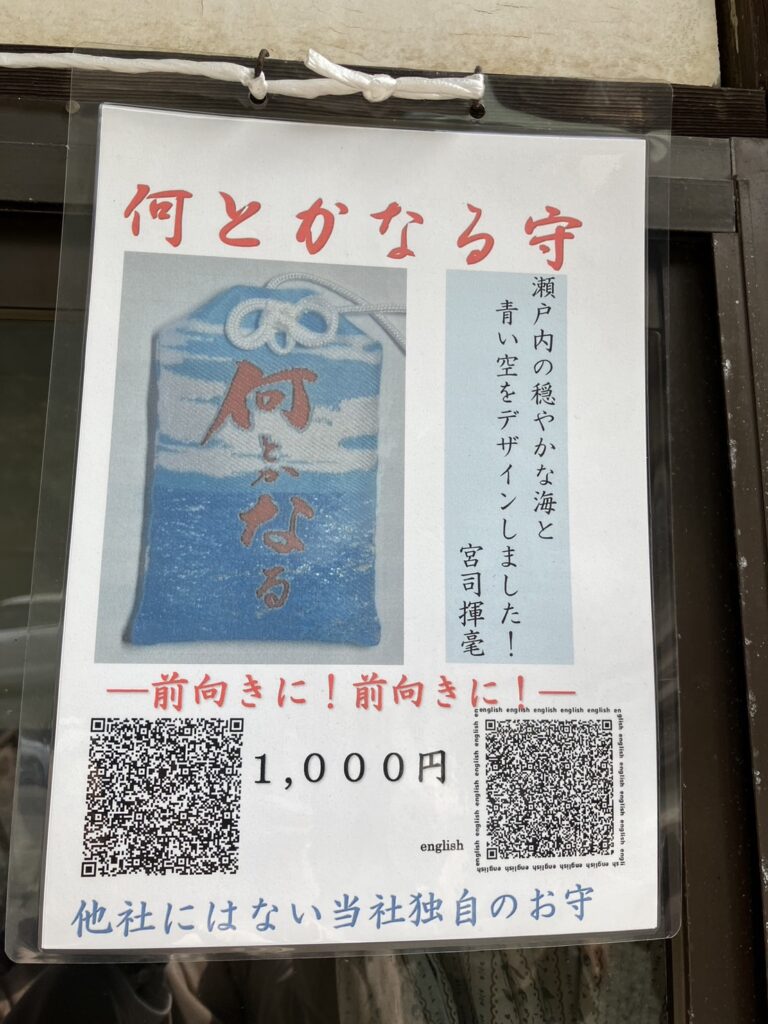 何とかなる守
何
とか
なる
瀬戸内の穏やかな海と
青い空をデザインしました！
宮司揮毫
―前向きに！前向きに！―
1,000円
english
english english english english english en
english english english english
english english english english
english english english engli
他社にはない当社独自のお守